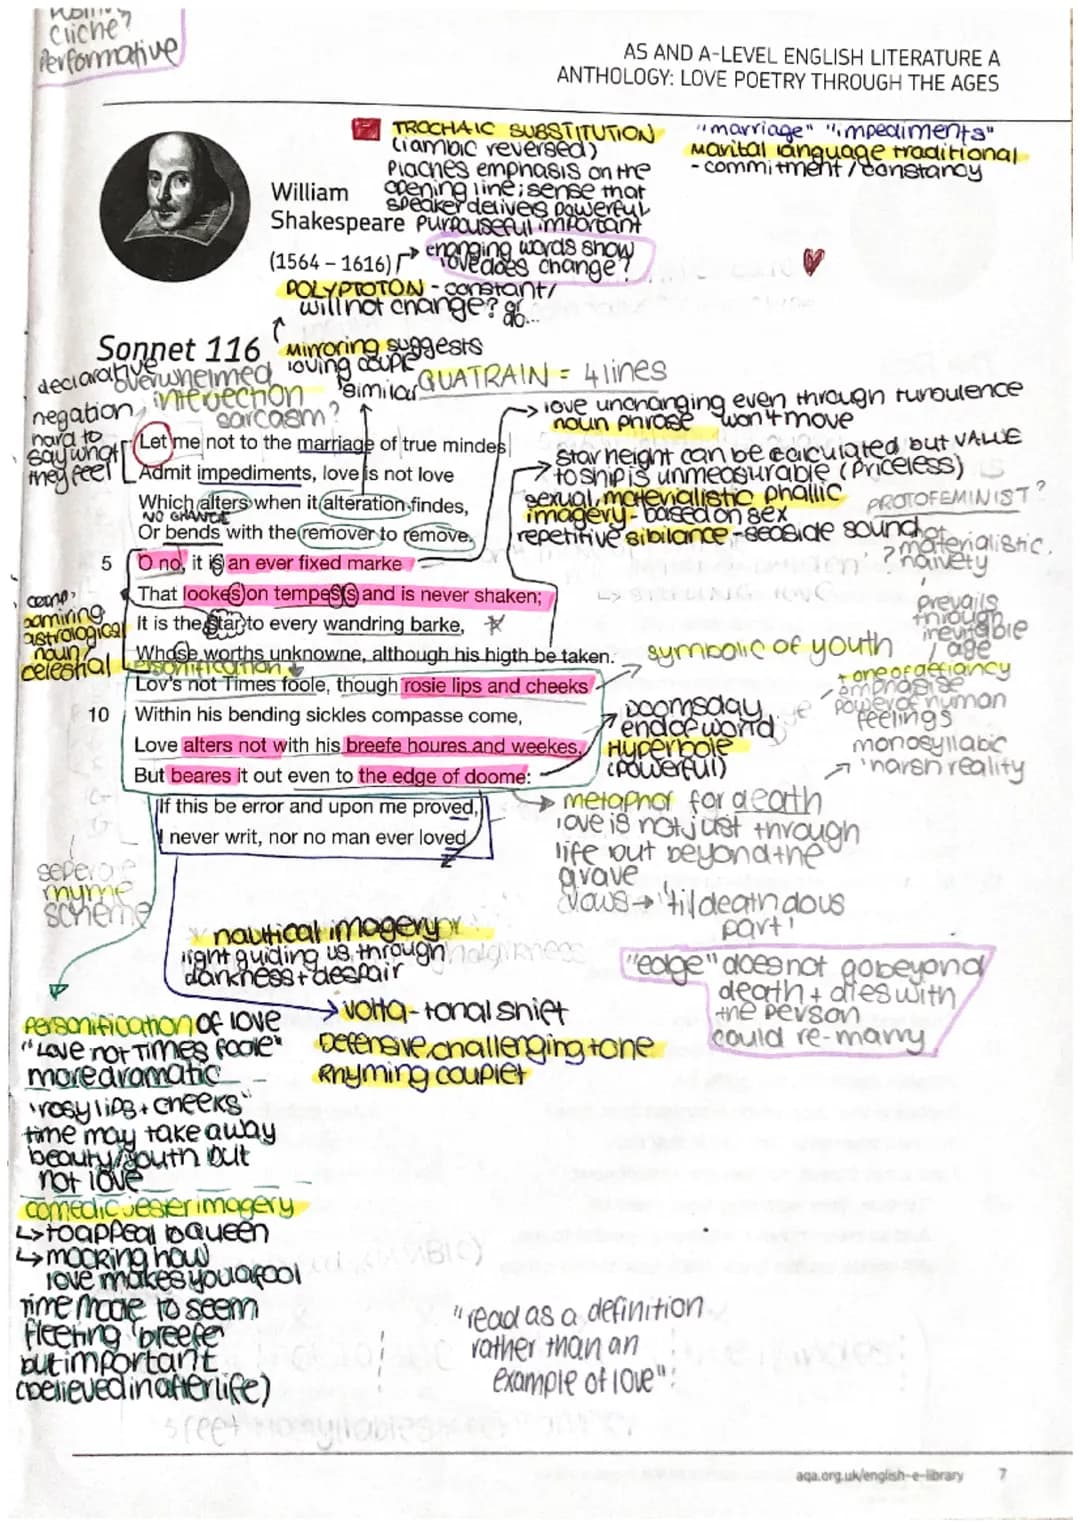 Cliche?
Performative
AS AND A-LEVEL ENGLISH LITERATURE A
ANTHOLOGY: LOVE POETRY THROUGH THE AGES
TROCHAIC SUBSTITUTION
(iambic reversed)
Plaches emphasis on the
opening line; sense that
speaker delivers powerful
purpouseful important
"marriage" "impediments"
Marital language traditional
- commitment / constancy
William
Shakespeare
(1564 – 1616)
changing words show
love does change?
POLYPTOTON - constant/
will not change? or
do...
Mirroring suggests
loving couple
similar
Sonnet 116
QUATRAIN = 4 lines
declarative
overwhelmed
negation
sarcasm?
hard to
say what
they feel
Let me not to the marriage of true mindes
Admit impediments, love is not love
Which alters when it alteration findes,
NO CHANGE
Or bends with the remover to remove.
5 O no, it is an ever fixed marke
That lookes on tempests and is never shaken;
It is the star to every wandring barke,
Whose worths unknowne, although his higth be taken.
personification
Lov's not Times foole, though rosie lips and cheeks
10 Within his bending sickles compasse come,
Love alters not with his breefe houres and weekes,
But beares it out even to the edge of doome:
If this be error and upon me proved,
I never writ, nor no man ever loved
love unchanging even through turbulence
noun phrase won't move
star height can be calculated but VALUE
to ship is unmeasurable (priceless)
sexual, materialistic phallic
imagery - based on sex
PROTOFEMINIST?
repetitive sibilance - seaside sound
not
materialistic.
? naivety
prevails
through
inevitable
age
admiring
astrological
noun/
celestial
symbolic of youth
tone of defiancy
emphasise
power of human
feelings
monosyllabic
'harsh reality
Doomsday
end of world
Hyperbole
(powerful)
metaphor for death
love is not just through
life but beyond the
grave
vows → 'til death dous
part'
seperate
rhyme
scheme
nautical imagery
light guiding us through
darkness + despair
"edge" does not go beyond
death + dies with
the person
could re-marry
volta - tonal shift
Defensive, challenging tone
Rhyming couplet
Personification of love
"Love not Times foole"
more dramatic
'rosy lips + cheeks'
time may take away
beauty/youth but
not love
comedic jester imagery
↳ to appeal to Queen
↳ mocking how
love makes you a fool
Time made to seem
fleeting 'breefe'
but important
(believed in afterlife)
"read as a definition
rather than an
example of love":
aqa.org.uk/english-e-library 7